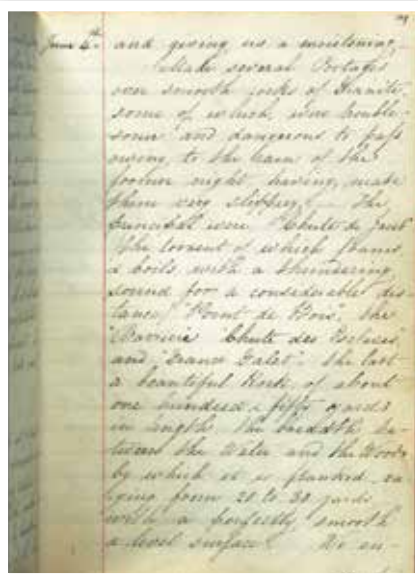 June 4th and giving us a
Made several Portages
over smooth rocks of Granite
some of which, were trouble-
some and dangerous to pass
owing to the rain of the
former night, having, made
them very slippery. The
principal were "Chute de
the torrent of which
& boils with a thundering
sound for a considerable dis-
tance, "Point de Bois", the
"Barriere" "Chute des Esclaves"
and "Grand Galet". the last
a beautiful Rock, of about
one hundred & fifty yards
in length the breadth be-
tween the Water and the Woods
by which it is flanked va-
rying from 20 to 30 yards
with a perfectly smooth
& level surface. We en-